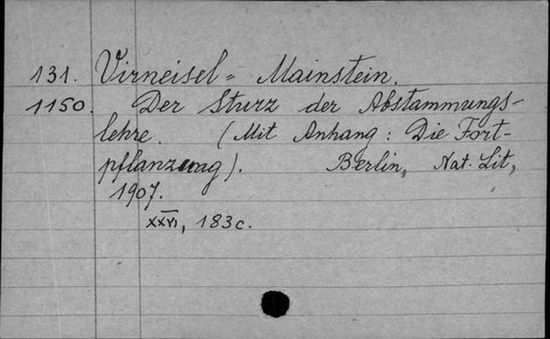 131. Virneisel = Mainstein.
1150. Der Sturz der Abstammungs-
lehre. (Mit Anhang: Die Fort-
pflanzung). Berlin, Nat. Lit,
1907.
XXVI, 183 c.